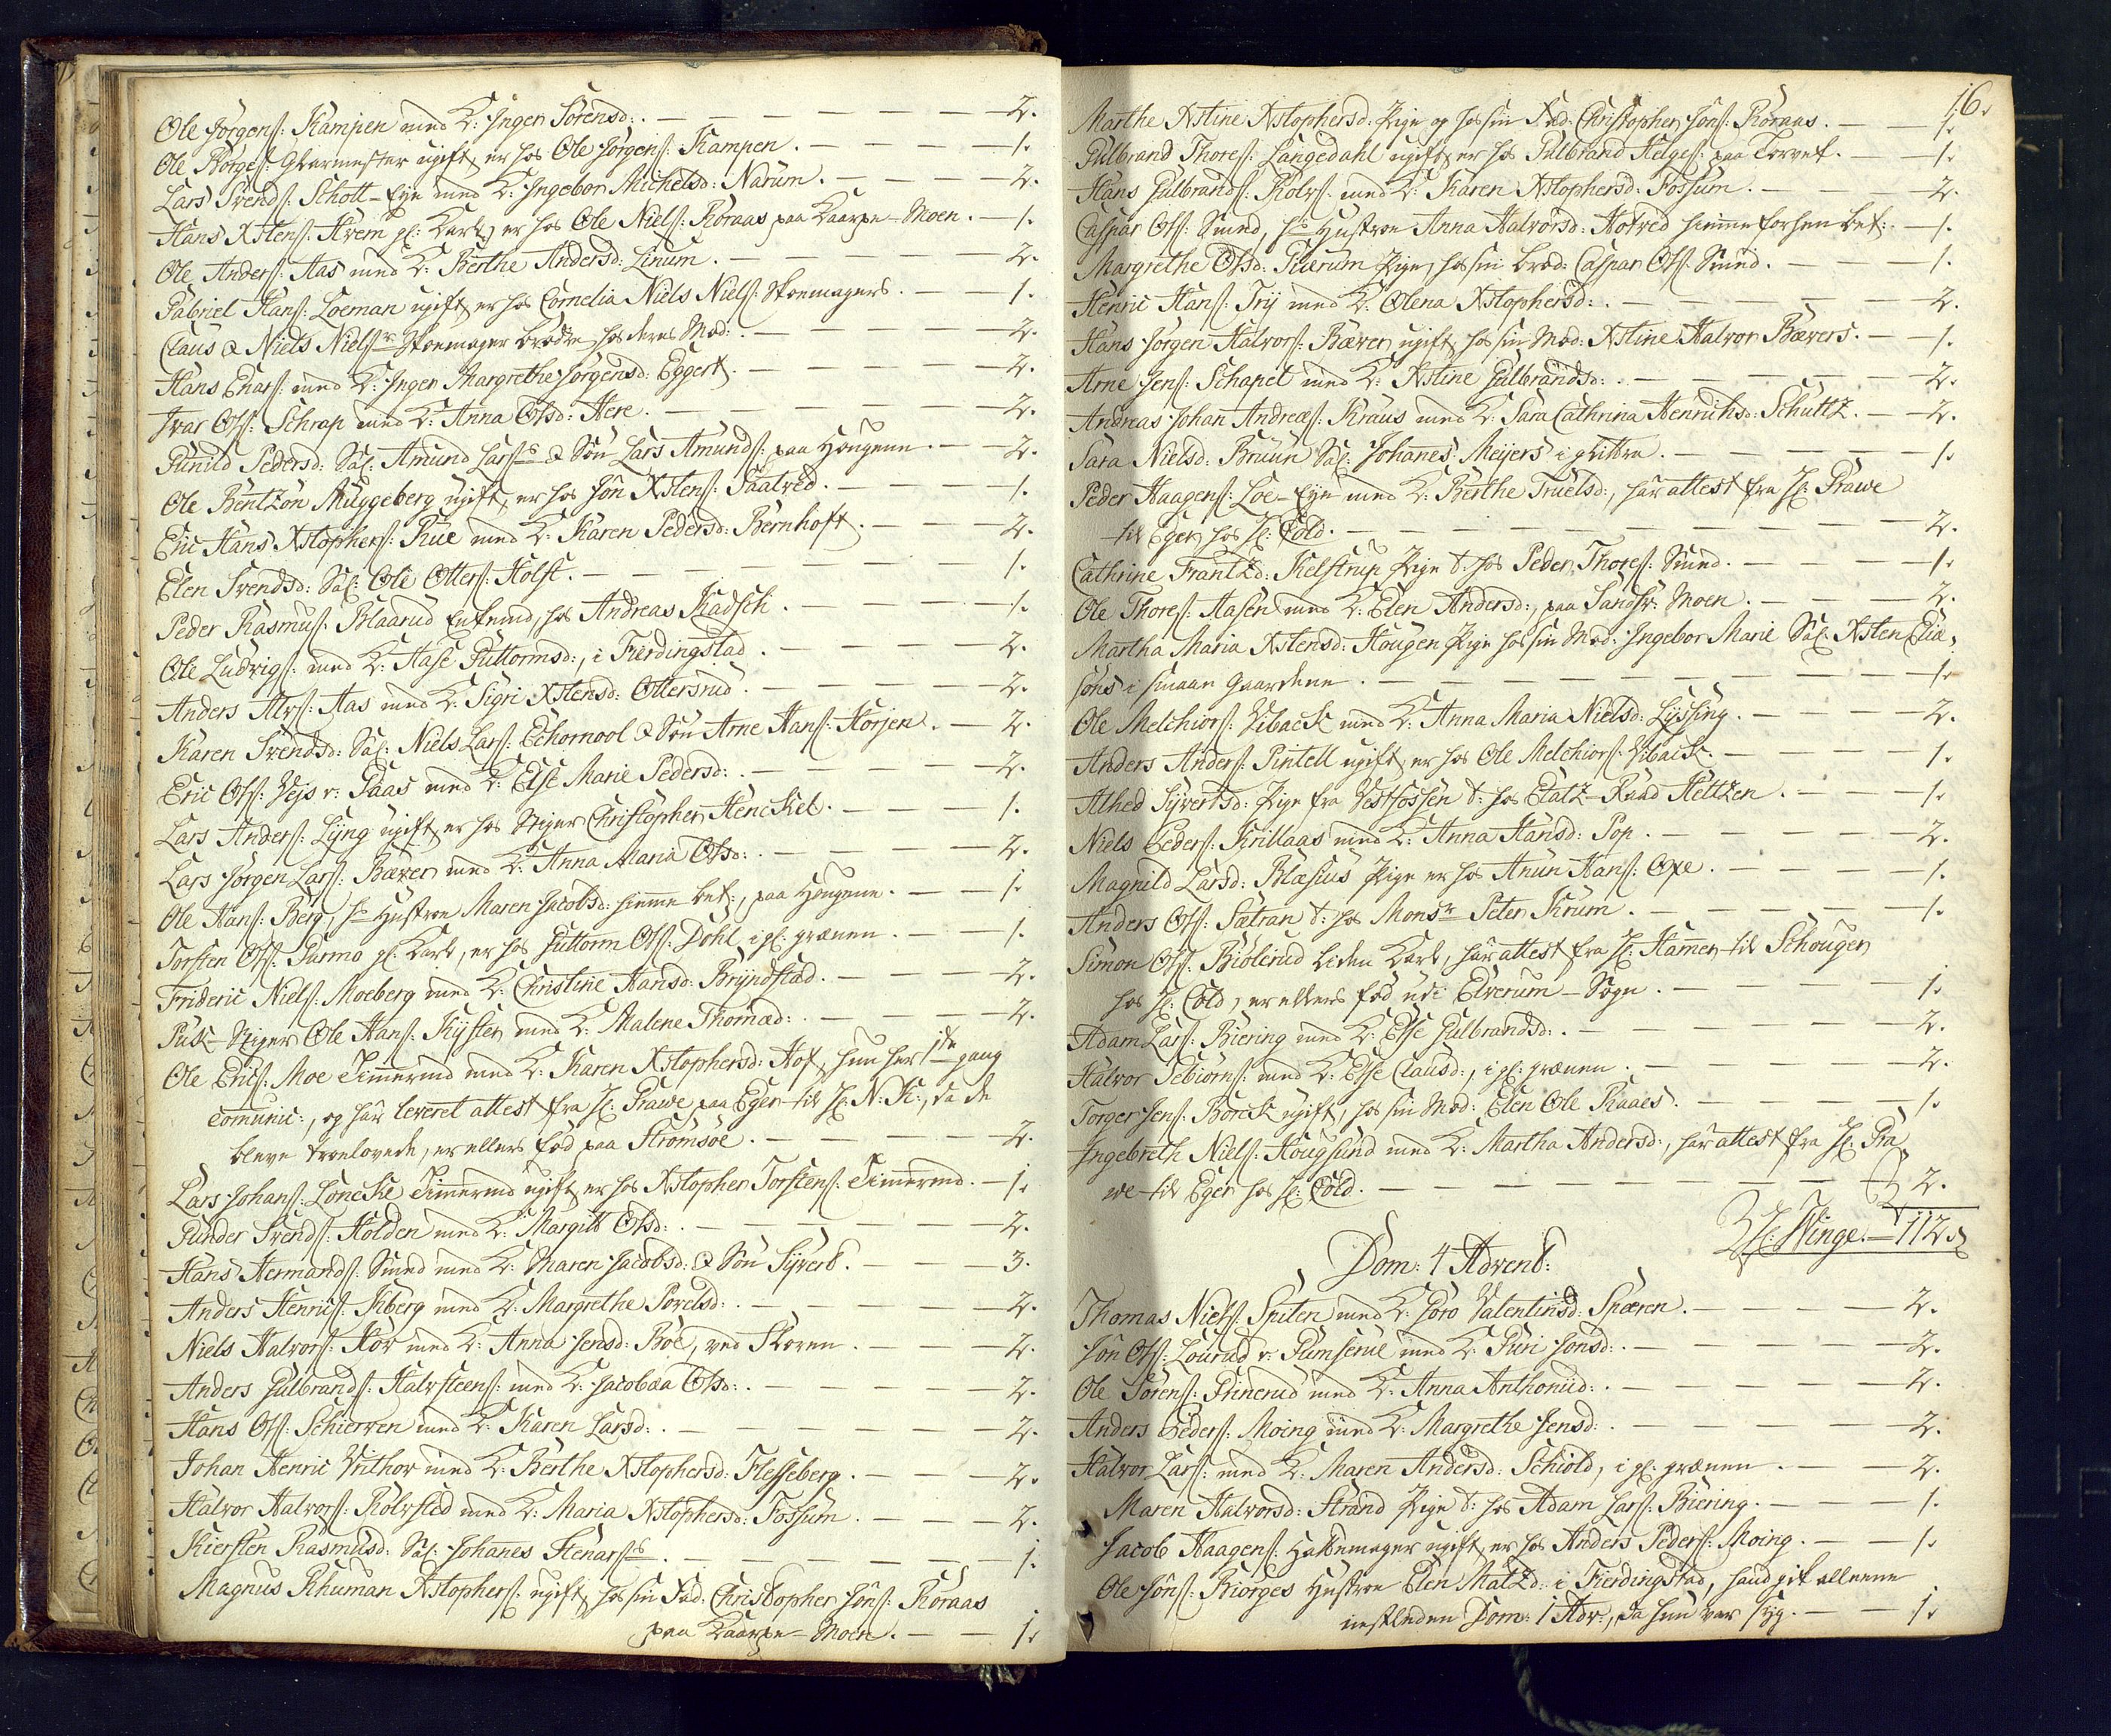 Ole Jörgens: Kampen med K: Inger Sörensd: . — — — — — 2.
Ole Börges: Glarmester ugift, er hos Ole Jörgens: Kampen. — — — 1.
Lars Svends: Schott-Eye med K: Ingebor Michelsd: Narum. — — — 2.
Hans Xstens: Hvem gl: Karl, er hos Ole Niels: Röraas paa Kaarpe-Moen. — 1.
Ole Anders: Aas med K: Berthe Andersd: Linum. — — — 2.
Gabriel Hans: Loeman ugift, er hos Cornelia Niels Niels: Skoemagers. — 1.
Claus & Niels Niels: Skoemager brödre hos deres Mod: . — — — 2.
Hans Enars: med K: Inger Margrethe Jörgensd: Eggert. — — — 2.
Ivar Ols: Schrap med K: Anna Olsd: Here. — — — 2.
Gunild Pedersd: Sal: Amund Lars: & Sön Lars Amunds: paa Hougene. — 2.
Ole Bentzön Muggeberg ugift, er hos Jön Xstens: Saatved. — — 1.
Eric Hans Xstophers: Rue med K: Karen Pedersd: Bernhoft. — — 2.
Elen Svendsd: Sal: Ole Otters: Holst. — — — 1.
Peder Rasmus: Blaarud Enkemd, hos Andreas Kadsch. — — — 1.
Ole Ludvigs: med K: Aase Guttormsd:, i Fierdingstad. — — — 2.
Anders Alvs: Aas med K: Sigri Xstensd: Ottersrud. — — — 2.
Karen Svendsd: Sal: Niels Lars: Echornool & Sön Arne Hans: Horjen. — 2.
Eric Ols: Vejs v: Saas med K: Else Marie Pedersd: . — — — 2.
Lars Anders: Lyng ugift, er hos Stiger Christopher Henckel. — — 1.
Lars Jörgen Lars: Bæver med K: Anna Maria Olsd: . — — — 2.
Ole Hans: Berg, hs Hustroe Maren Jacobsd: hiemme bet:, paa Hougene. — 1.
Torsten Ols: Purmo gl: Karl, er hos Guttorm Ols: Dohl i gl: grænen. — 1.
Frideric Niels: Moeberg med K: Christine Hansd: Bryndstad. — — 2.
Puk-Stiger Ole Hans: Kyster med K: Malene Thomæd: . — — 2.
Ole Erics: Moe Timmermd med K: Karen Xstophersd: Hof, hun her 1te gang
communic:, og har leveret attest fra H: Grawe paa Eger til H: N: K:, da de
bleve troelovede, er ellers föd paa Strömsöe. — — — 2.
Lars Johans: Loncke Timmermd ugift, er hos Xstopher Torstens: Timmermd. — 1.
Gunder Svends: Holden med K: Margith Olsd: . — — — 2.
Hans Hermands: Smed med K: Maren Jacobsd: & Sön Syvert. — — 3.
Anders Henrics: Kiberg med K: Margrethe Povelsd: . — — — 2.
Niels Halvors: Hov med K: Anna Jensd: Böe, ved Skoven. — — 2.
Anders Gulbrands: Halvsteens: med K: Jacobæa Olsd: . — — — 2.
Hans Ols: Schierven med K: Karen Larsd: . — — — 2.
Johan Henric Vrithor med K: Berthe Xstophersd: Flesseberg. — — 2.
Halvor Halvors: Rolvsted med K: Maria Xstophersd: Fossum. — — 2.
Kiersten Rasmusd: Sal: Johanes Stenars: . — — — 1.
Magnus Rhuman Xstophers: ugift, hos sin Fad: Christopher Jöns: Röraas
paa Kaarpe-Moen. — — 1.
16.
Marthe Xstine Xstophersd: Pige og hos sin Fad: Christopher Jöns: Röraas. — 1.
Gulbrand Thores: Langedahl ugift er hos Gulbrand Helges: paa Torvet. — 1.
Hans Gulbrands: Rolvs: med K: Karen Xstophersd: Fossum. — — 2.
Caspar Ols: Smed, hs Hustroe Anna Halvorsd: Hotved hiemme forhen bet: . — 1.
Margrethe Olsd: Tuerum Pige, hos sin brod: Caspar Ols: Smed. — — 1.
Henric Hans: Try med K: Olena Xstophersd: . — — — 2.
Hans Jörgen Halvors: Bæver ugift, hos sin Mod: Xstine Halvor Bævers. — 1.
Arne Jens: Schapel med K: Xstine Gulbrandsd: . — — — 2.
Andreas Johan Andreæs: Kraus med K: Sara Cathrina Henrichsd: Schultz. — 2.
Sara Nielsd: Bruun Sal: Johanes Meyers i glittre. — — — 1.
Peder Haagens: Loe-Eye med K: Berthe Truelsd:, har attest fra H: Grawe
til Eger hos H: Cold. — — — 2.
Cathrine Frantzd: Kelstrup Pige t: hos Peder Thores: Smed. — — 1.
Ole Thores: Aasen med K: Elen Andersd:, paa Sandsv: Moen. — — 2.
Martha Maria Xstensd: Hougen Pige hos sin Mod: Ingebor Marie Sal: Xsten Eliæ
söns i smaae Gaardene. — — — 1.
Ole Melchiors: Vibæck med K: Anna Maria Nielsd: Lyssing. — — 2.
Anders Anders: Pintell ugift, er hos Ole Melchiors: Vibæck. — — 1.
Alhed Syvertsd: Pige fra Vestfossen t: hos Etatz-Raad Heltzen. — — 1.
Niels Peders: Krillaas med K: Anna Hansd: Pop. — — — 2.
Magnild Larsd: Blæsius Pige er hos Anun Hans: Oxe. — — 1.
Anders Ols: Sætran t: hos Monsr Peter Krum. — — — 1.
Simon Ols: Biölerud liden Karl, har attest fra H: Hamer til Schouger
hos H: Cold, er ellers föd udi Elverum-Sogn. — — 1.
Adam Lars: Biering med K: Else Gulbrandsd: . — — — 2.
Halvor Tebiörns: med K: Else Clausd:, i gl: grænen. — — 2.
Torger Jens: Borck ugift, hos sin Mod: Elen Ole Raaes. — — 1.
Ingebreth Niels: Hougsund med K: Martha Andersd:, har attest fra H: Gra
we til Eger hos H: Cold. — — — 2.
H: Winge. — 112
Dom: 4 Advent:
Thomas Niels: Spiten med K: Goro Valentinsd: Spæren. — — 2.
Jön Ols: Lourud v: Rumserue med K: Guri Jonsd: . — — 2.
Ole Sörens: Prinerud med K: Anna Anthoniid: . — — — 2.
Anders Peders: Moing med K: Margrethe Jensd: . — — 2.
Halvor Lars: med K: Maren Andersd: Schiold, i gl: grænen. — — 2.
Maren Halvorsd: Strand Pige t: hos Adam Lars: Biering. — — 1.
Jacob Haagens: Hattemager ugift, er hos Anders Peders: Moing. — 1.
Ole Jöns: Biorges Hustroe Elen Matzd: i Fierdingstad, hand gik alleene
nestleden Dom: 1 Adv:, da hun var syg. — — 1.